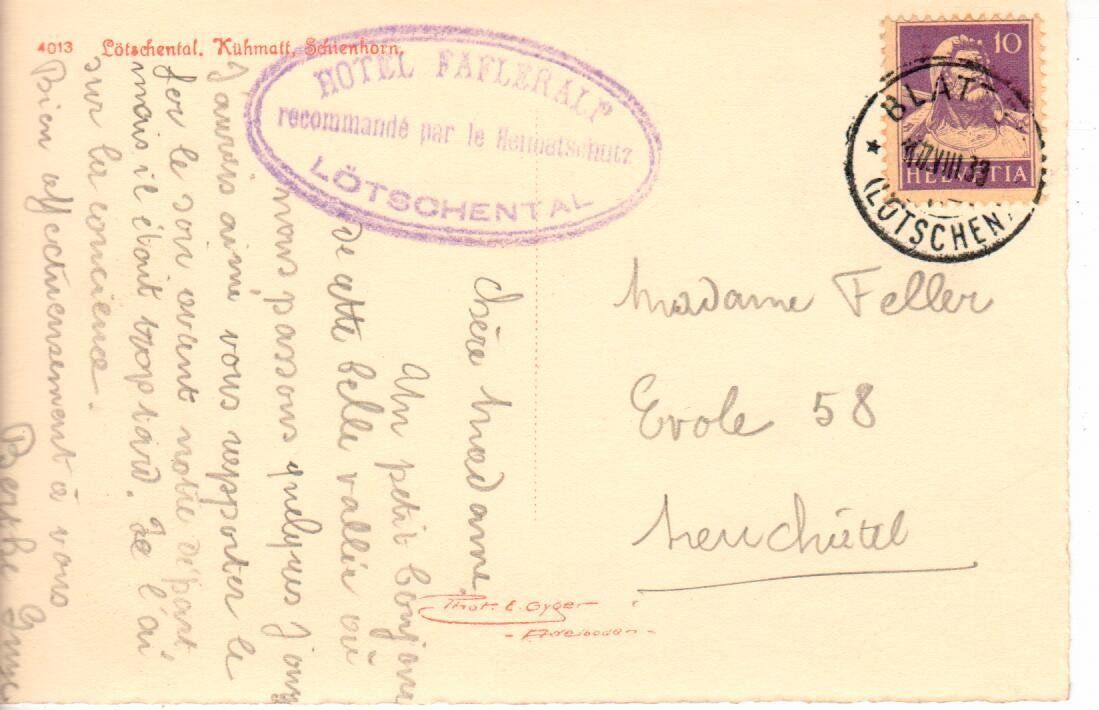 4013 Lötschental. Kühmatt, Schienhorn.
HOTEL FAFLERALP
recommandé par le Heimatschutz
LÖTSCHENTAL
10
HELVETIA
BLAT
VIII.33
(LÖTSCHEN
Chère Madame,
Un petit bonjour
de cette belle vallée où
nous passons quelques jours
J'aurais aimé vous rapporter le
fer le soir avant notre départ
mais il était trop tard. Je l'ai
sur la concience.
Bien affectueusement à vous
Berthe
Madame Feller
Evole 58
Neuchâtel
Phot. E. Gyger
- Adelboden -